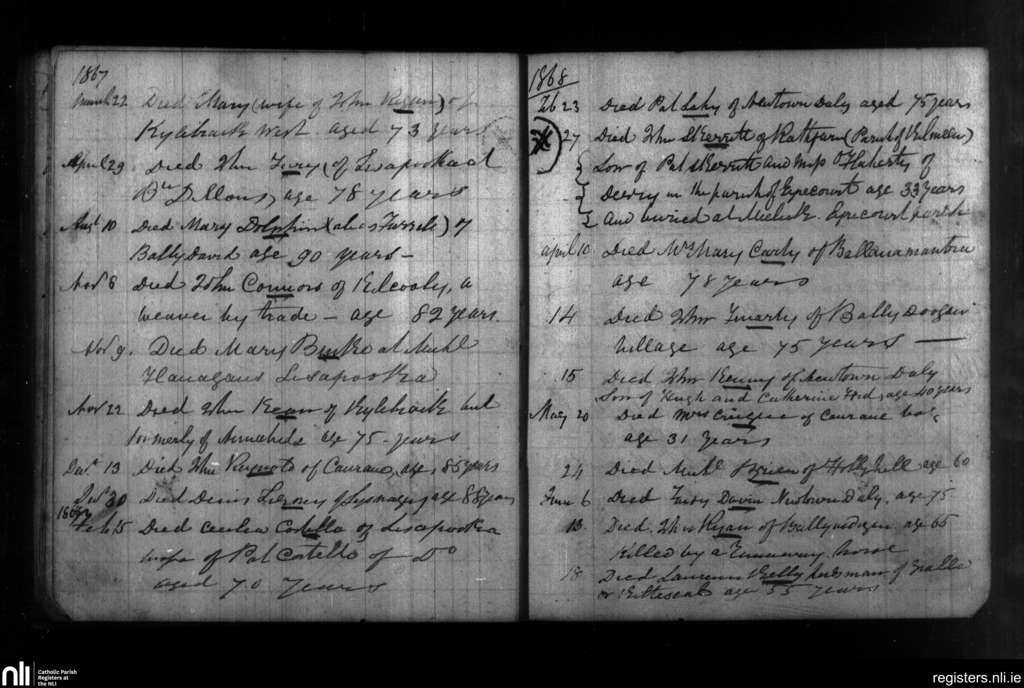 1867
March 22 Died Mary (wife of John Regan) of
Kylebrack West aged 73 years
April 29 Died John (of Lisapooka at
Bn Dillons, age 78 years
Aug 10 Died Mary Dolphin (alias Farrell) of
Ballydavid age 90 years -
Nov 8 Died John Connors of Kilcooly, a
weaver by trade - age 82 years.
Nov 9. Died Mary Burke at Michl
Flanagans Lisapooka
Nov 22 Died John Regan of Kylebrack but
formerly of age 75 years
Decr 13 Died John of age, 85 years
Decr 30 Died Denis of age 88 years
1868
Feb 15 Died Cecilia Costello of Lisapooka
wife of Pat Costello of Do
aged 70 years
1868
Feb 23 Died Pat Lahy of Newtown Daly aged 75 years
27 Died John Skerrett of Rathfarn (Parish of Kilmeen)
Son of Pat Skerrett and Miss O'Flaherty of
Derry in the parish of Eyrecourt age 33 years
And buried at Meelick. Eyrecourt parish
April 10 Died Mrs Mary of Ballinamantin
age 78 years
14 Died John of Bally Doogan
village age 75 years
15 Died John Kenny of Newtown Daly
Son of Hugh and Catherine Ford, age 40 years
May 20 Died Mrs of
age 31 years
24 Died Michl Brien of Hollyhill age 60
June 6 Died Davin Newtown Daly, age 75
13 Died John Ryan of age 65
Killed by a runaway horse
18 Died Laurence Kelly herdsman of
or age 55 years
nli Catholic Parish
Registers at
the NLI
registers.nli.ie